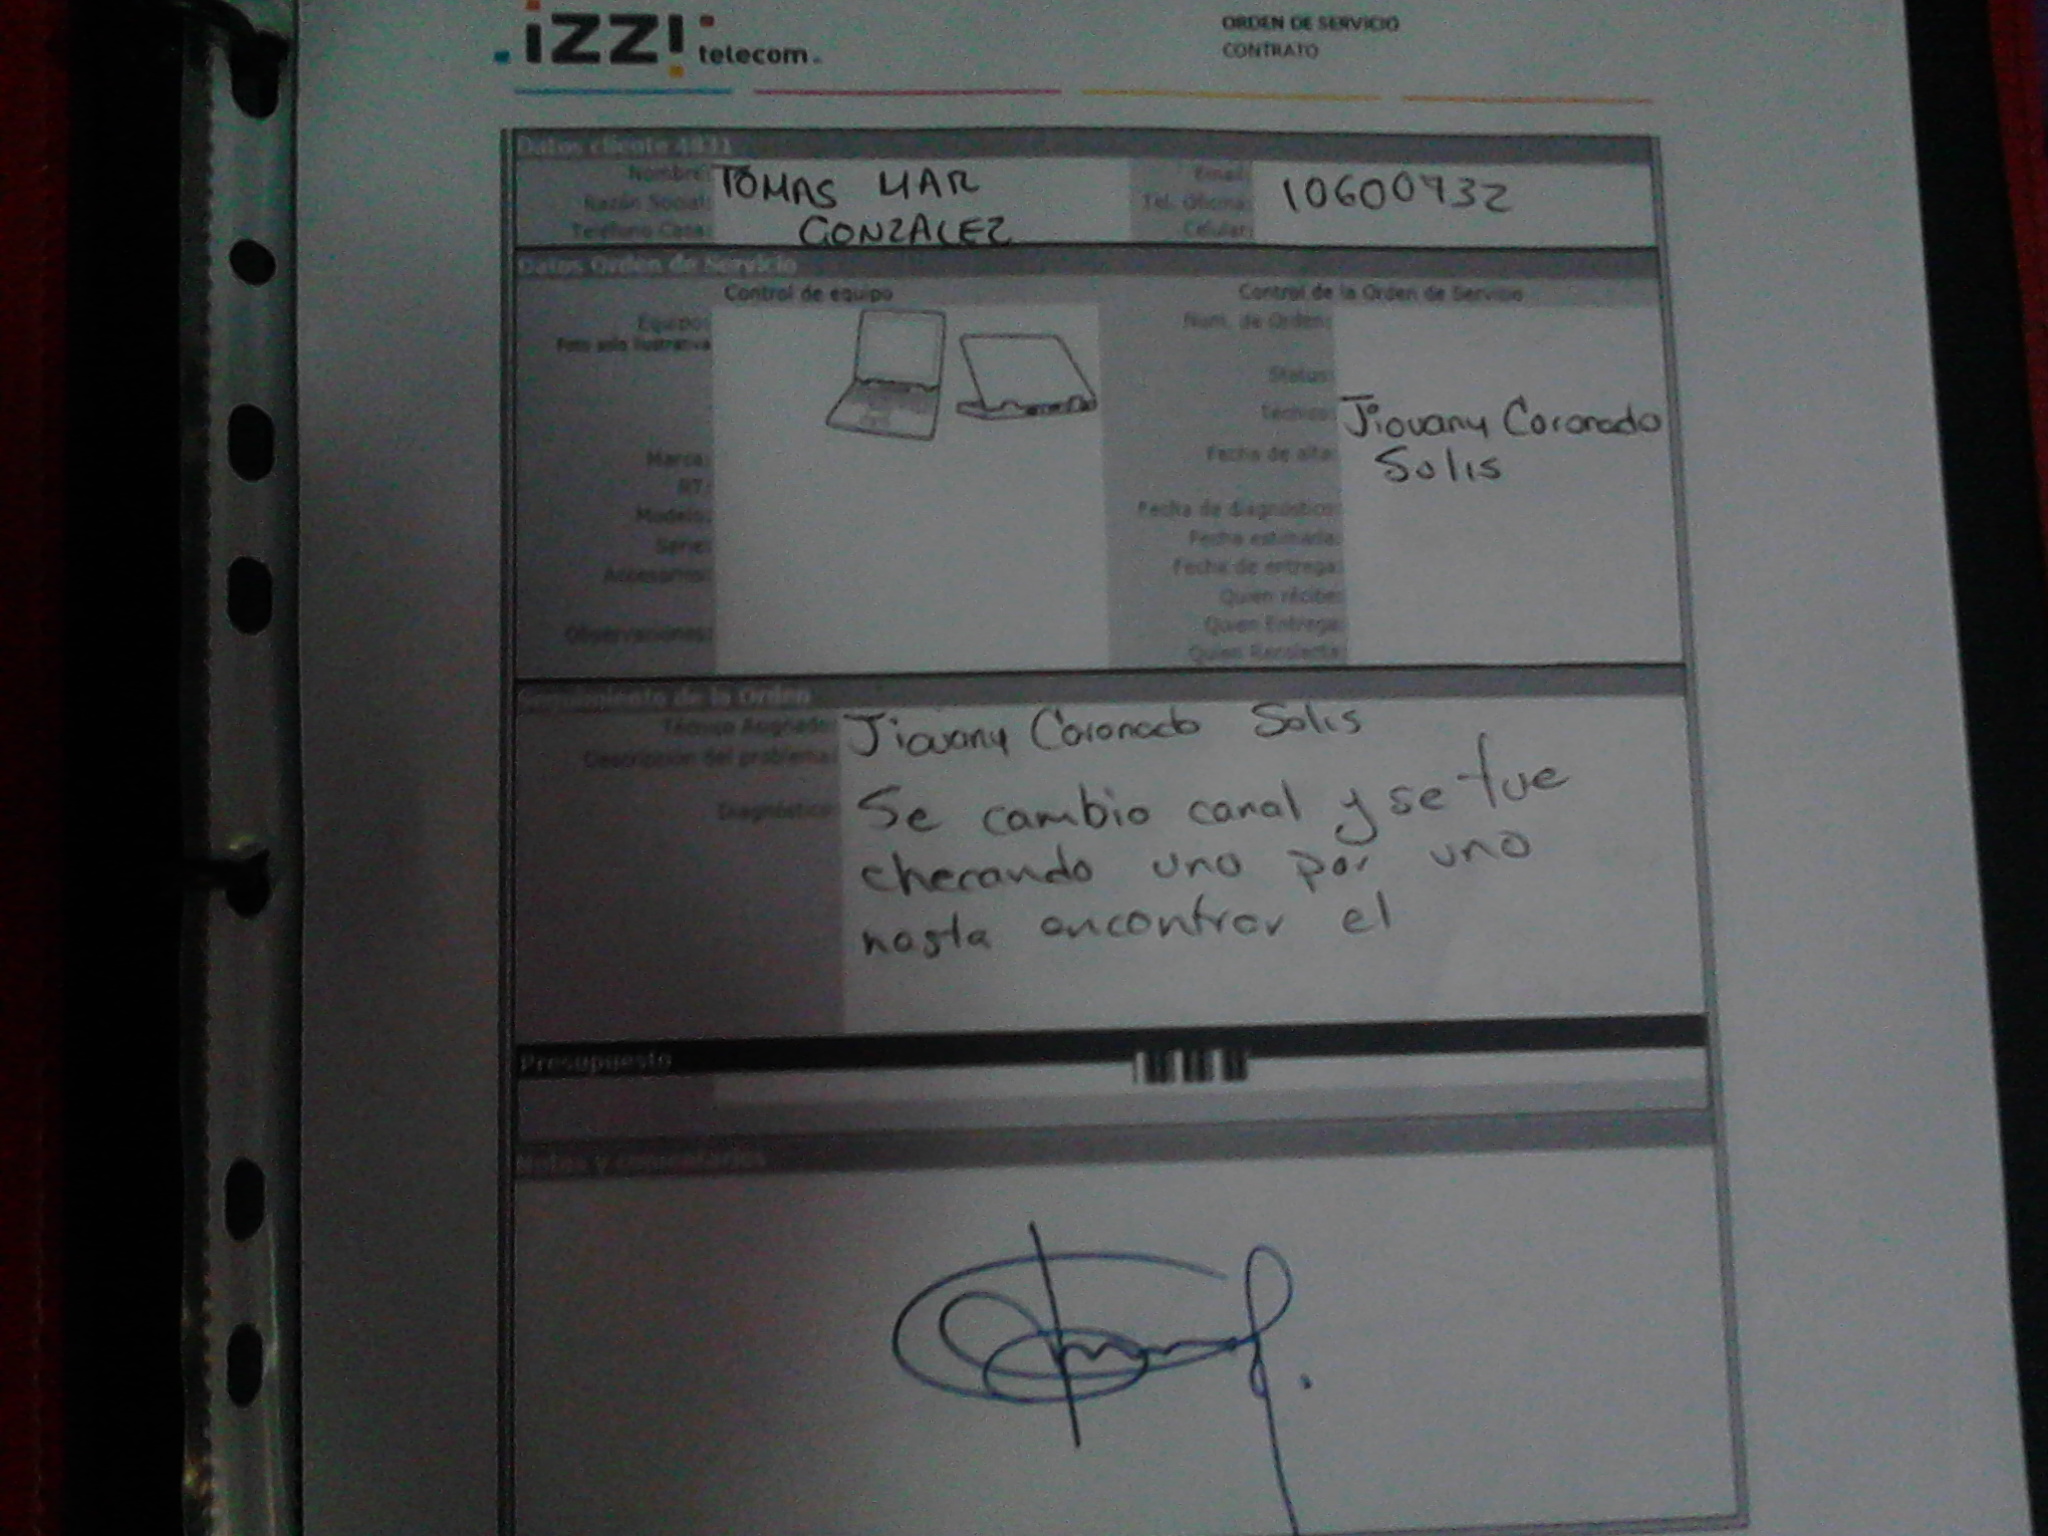 izzi telecom
ORDEN DE SERVICIO
CONTRATO
Datos cliente 4831
Nombre: TOMAS MAR
Razón Social:
GONZALEZ
Teléfono Casa:
Email:
Tel. Oficina: 10600932
Celular:
Datos Orden de Servicio
Control de equipo
Equipo:
Foto solo ilustrativa
Marca:
Modelo:
Serie:
Accesorios:
Observaciones:
Control de la Orden de Servicio
Num. de Orden:
Status:
Técnico: Jiovany Coronado
Solis
Fecha de alta:
Fecha de diagnóstico:
Fecha estimada:
Fecha de entrega:
Quien recibe:
Quien Entrega:
Quien Recolecta:
Seguimiento de la Orden
Técnico Asignado: Jiovany Coronado Solis
Descripción del problema:
Diagnóstico: Se cambio canal y se fue
checando uno por uno
hasta encontrar el
Presupuesto
Notas y comentarios